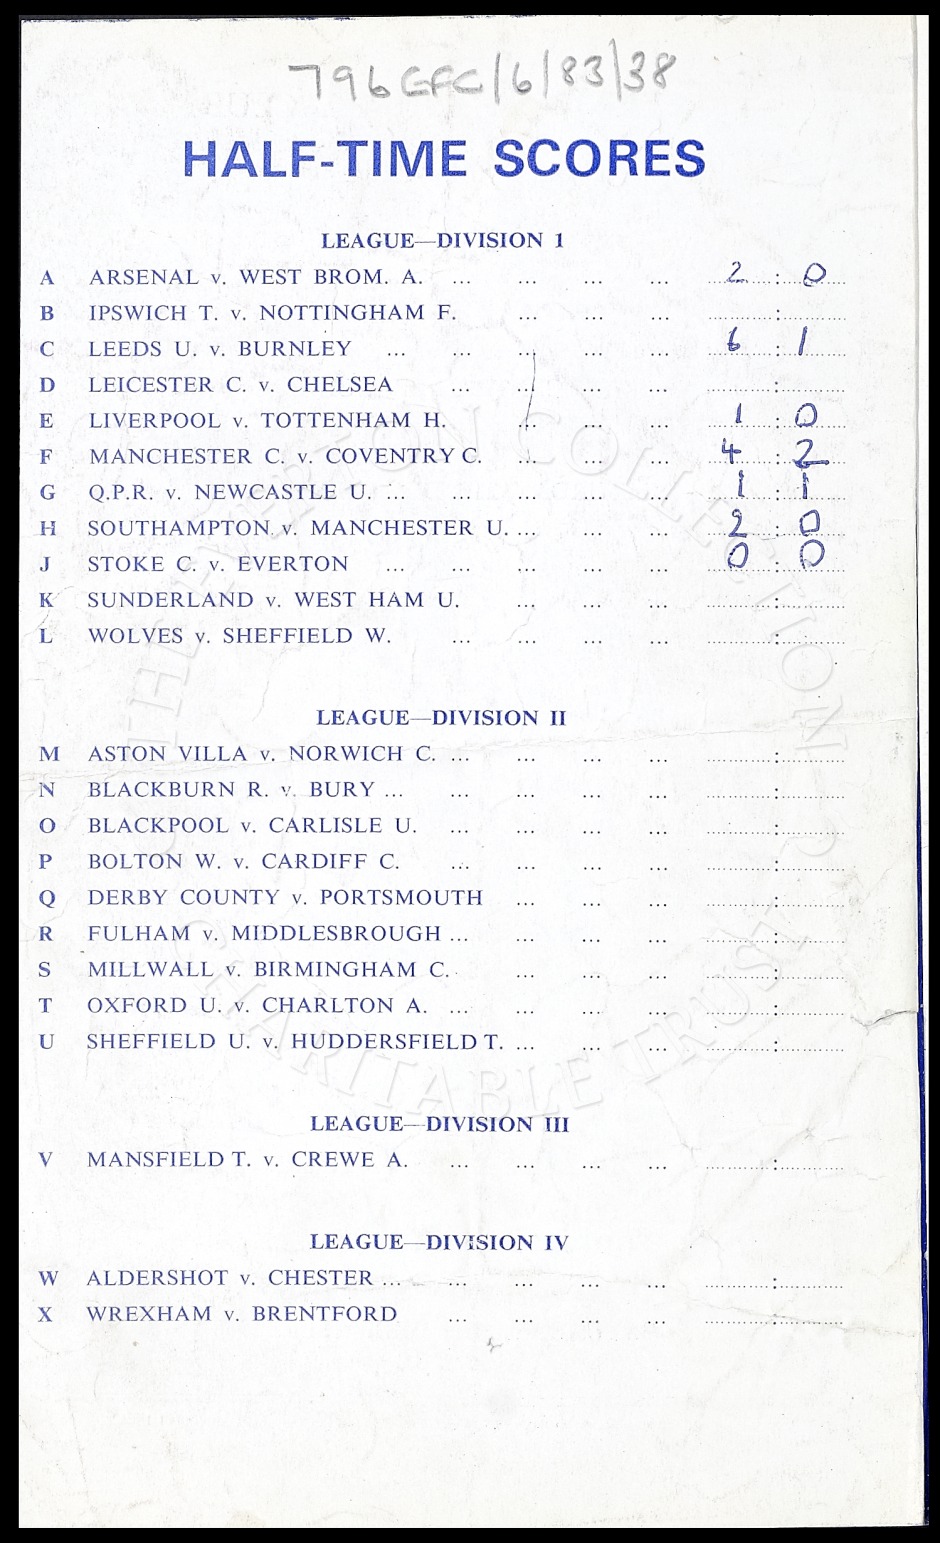 796 EFC/6/83/38
HALF-TIME SCORES
LEAGUE—DIVISION 1
A ARSENAL v. WEST BROM. A. ... ... ... ... 2 : 0
B IPSWICH T. v. NOTTINGHAM F. ... ... ... :
C LEEDS U. v. BURNLEY ... ... ... ... ... 6 : 1
D LEICESTER C. v. CHELSEA ... ... ... ... :
E LIVERPOOL v. TOTTENHAM H. ... ... ... 1 : 0
F MANCHESTER C. v. COVENTRY C. ... ... ... 4 : 2
G Q.P.R. v. NEWCASTLE U. ... ... ... ... ... 1 : 1
H SOUTHAMPTON v. MANCHESTER U. ... ... ... 2 : 0
J STOKE C. v. EVERTON ... ... ... ... ... 0 : 0
K SUNDERLAND v. WEST HAM U. ... ... ... :
L WOLVES v. SHEFFIELD W. ... ... ... ... :
LEAGUE—DIVISION II
M ASTON VILLA v. NORWICH C. ... ... ... ... :
N BLACKBURN R. v. BURY ... ... ... ... ... :
O BLACKPOOL v. CARLISLE U. ... ... ... ... :
P BOLTON W. v. CARDIFF C. ... ... ... ... :
Q DERBY COUNTY v. PORTSMOUTH ... ... ... :
R FULHAM v. MIDDLESBROUGH ... ... ... ... :
S MILLWALL v. BIRMINGHAM C. ... ... ... :
T OXFORD U. v. CHARLTON A. ... ... ... ... :
U SHEFFIELD U. v. HUDDERSFIELD T. ... ... ... :
LEAGUE—DIVISION III
V MANSFIELD T. v. CREWE A. ... ... ... ... :
LEAGUE—DIVISION IV
W ALDERSHOT v. CHESTER ... ... ... ... ... :
X WREXHAM v. BRENTFORD ... ... ... ... :
THE EVERTON COLLECTION
CHARITABLE TRUST